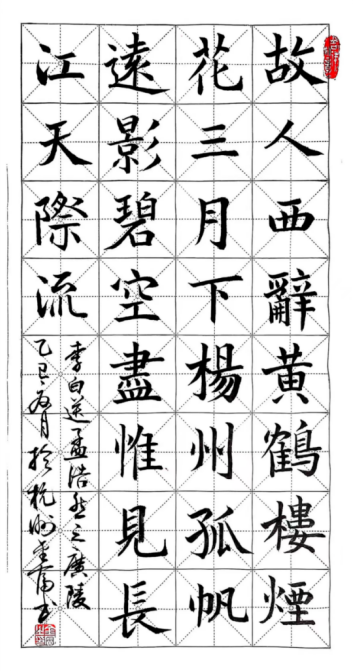 故人西辭黄鶴樓煙
花三月下楊州孤帆
遠影碧空盡惟見長
江天際流
李白送孟浩然之廣陵
乙巳 月於杭州